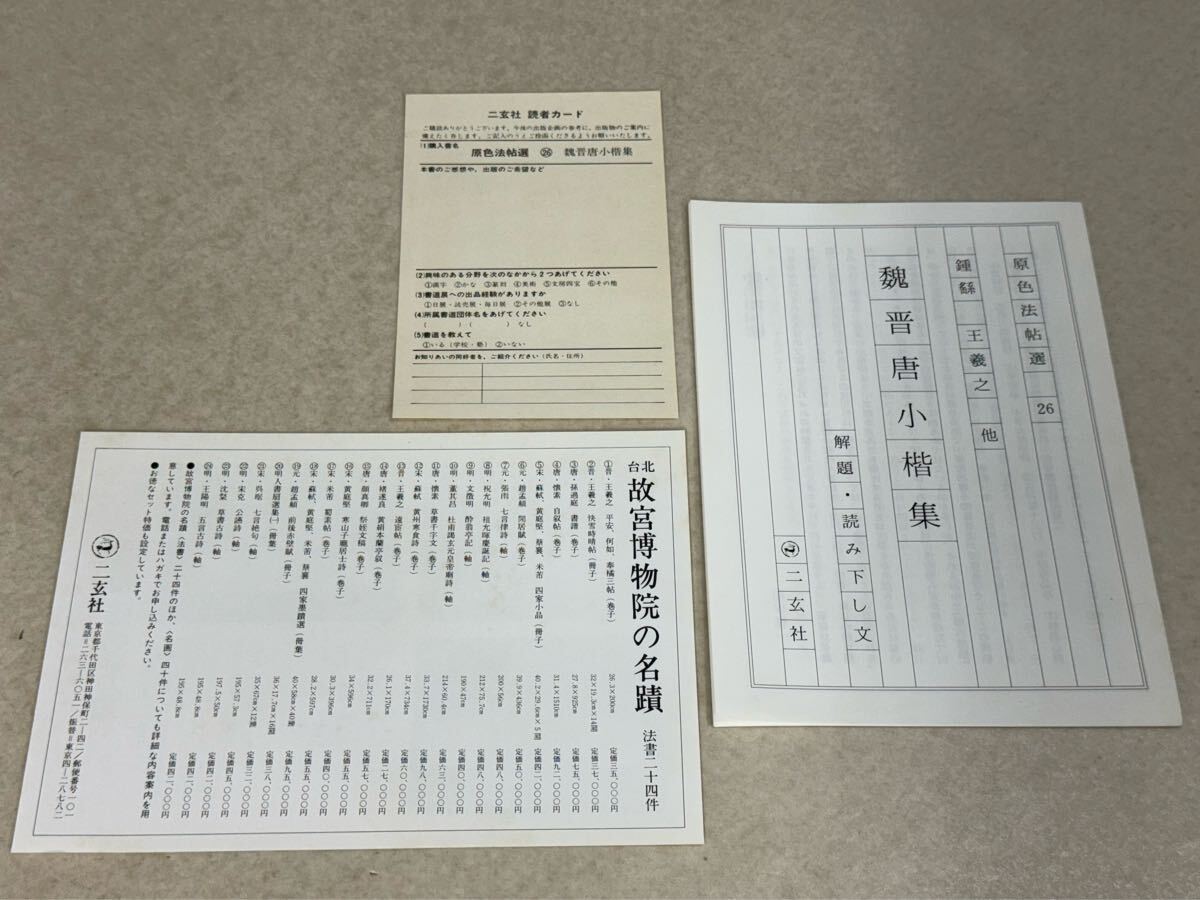 二玄社 読者カード
ご購読ありがとうございます。今後の出版企画の参考に、出版物のご案内に
備えたく存じます。ご記入のうえご投函くださるようお願いいたします。
(1)購入書名
原色法帖選 ㉖ 魏晋唐小楷集
本書のご感想や、出版のご希望など
(2)興味のある分野を次のなかから2つあげてください
①漢字 ②かな ③篆刻 ④美術 ⑤文房四宝 ⑥その他
(3)書道展への出品経験がありますか
①日展・読売展・毎日展 ②その他展 ③なし
(4)所属書道団体名をあげてください
( )( ) なし
(5)書道を教えて
①いる(学校・塾) ②いない
お知りあいの同好者を、ご紹介ください(氏名・住所)
原色法帖選 26
鍾繇 王羲之 他
魏晋唐小楷集
解題・読み下し文
二玄社
台北
故宮博物院の名蹟 法書二十四件
①晋・王羲之 平安、何如、奉橘三帖(巻子) 26.3×200cm 定価三五、〇〇〇円
②晋・王羲之 快雪時晴帖(冊子) 32×19.3cm×14面 定価三七、〇〇〇円
③唐・孫過庭 書譜(巻子) 27.8×925cm 定価七五、〇〇〇円
④唐・懐素 自叙帖(巻子) 31.4×1510cm 定価九二、〇〇〇円
⑤宋・蘇軾、黄庭堅、蔡襄、米芾 四家小品(冊子) 40.2×29.6cm×5面 定価四二、〇〇〇円
⑥元・趙孟頫 閑居賦(巻子) 39.9×636cm 定価五〇、〇〇〇円
⑦元・張雨 七言律詩(軸) 200×56cm 定価四八、〇〇〇円
⑧明・祝允明 祖允塚慶誕記(軸) 212×75.7cm 定価四八、〇〇〇円
⑨明・文徴明 酔翁亭記(軸) 190×47cm 定価四〇、〇〇〇円
⑩明・董其昌 杜甫謁玄元皇帝廟詩(軸) 214×60.4cm 定価六三、〇〇〇円
⑪唐・懐素 草書千字文(巻子) 33.7×173cm 定価九八、〇〇〇円
⑫宋・蘇軾 黄州寒食詩(巻子)
⑬晋・王羲之 遠宦帖(巻子) 37.4×734cm 定価六〇、〇〇〇円
⑭唐・褚遂良 黄絹本蘭亭叙(巻子) 26.1×170cm 定価二七、〇〇〇円
⑮唐・顔真卿 祭姪文稿(巻子) 32.2×711cm 定価五七、〇〇〇円
⑯宋・黄庭堅 寒山子龐居士詩(巻子) 34×596cm 定価五五、〇〇〇円
⑰宋・米芾 蜀素帖(巻子) 30.3×396cm 定価四〇、〇〇〇円
⑱宋・蘇軾、黄庭堅、米芾、蔡襄 四家墨蹟選(冊葉) 28.2×597cm 定価五五、〇〇〇円
⑲元・趙孟頫 前後赤壁賦(冊子) 40×58cm×40面 定価九五、〇〇〇円
⑳明人書扇選集(一)(冊葉) 36×17.7cm×16面 定価三八、〇〇〇円
㉑宋・呉琚 七言絶句(軸) 35×67cm×12扇
㉒明・宋克 公讌詩(軸) 195×57.3cm 定価四五、〇〇〇円
㉓明・沈粲 草書古詩(軸) 197.5×50cm 定価四二、〇〇〇円
㉔明・王陽明 五言古詩(軸) 195×48.8cm 定価四二、〇〇〇円
●故宮博物院の名蹟〈法書〉二十四件のほか、〈名画〉四十件についても詳細な内容案内を用
意しています。電話またはハガキでお申し込みください。
●お徳なセット特価も設定しています。
二玄社 東京都千代田区神田神保町二―四二/郵便番号一〇一
電話=二六三―六〇五一/振替=東京四―二八七八二